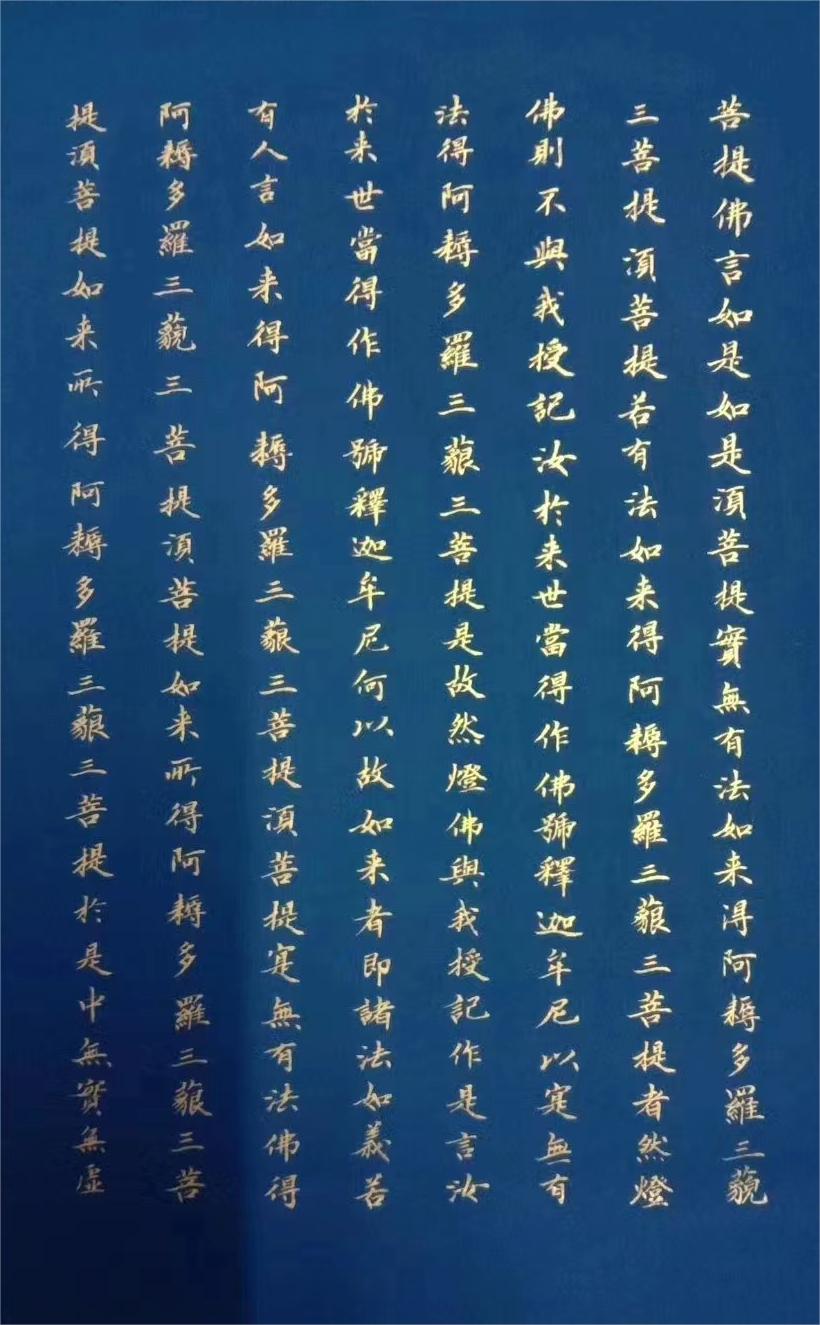 菩提佛言如是如是須菩提實無有法如来得阿耨多羅三藐
三菩提須菩提若有法如来得阿耨多羅三藐三菩提者然燈
佛則不與我授記汝於来世當得作佛號釋迦牟尼以寔無有
法得阿耨多羅三藐三菩提是故然燈佛與我授記作是言汝
於来世當得作佛號釋迦牟尼何以故如来者即諸法如義若
有人言如来得阿耨多羅三藐三菩提須菩提寔無有法佛得
阿耨多羅三藐三菩提須菩提如来所得阿耨多羅三藐三菩
提須菩提如来所得阿耨多羅三藐三菩提於是中無實無虛